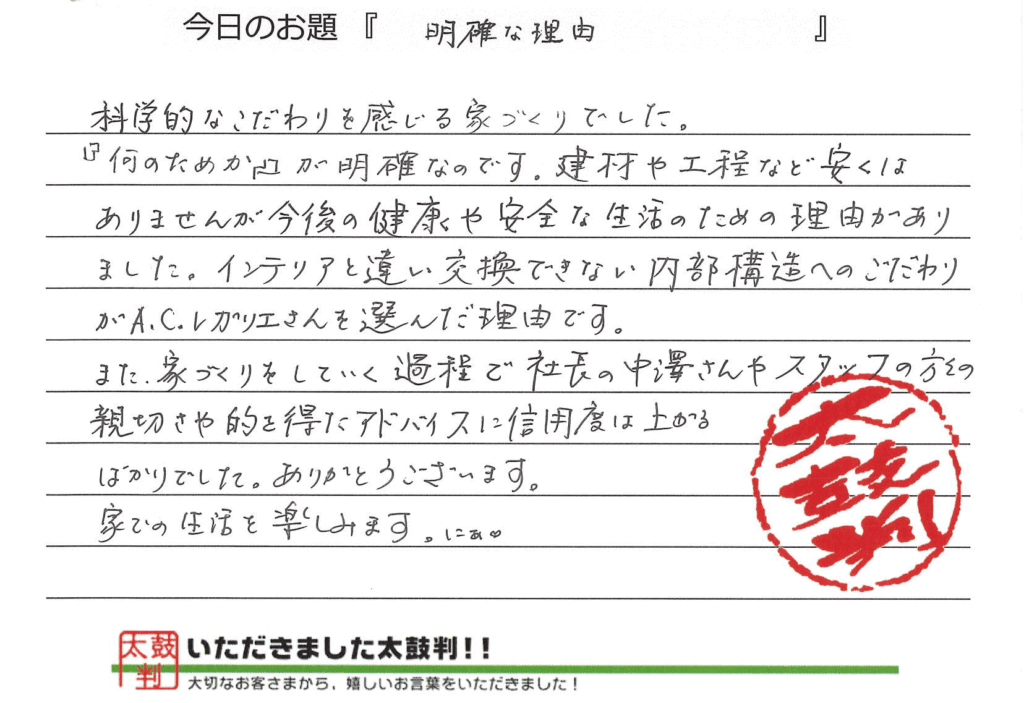 今日のお題『 明確な理由 』
科学的なこだわりを感じる家づくりでした。
『何のためか』が明確なのです。建材や工程など安くは
ありませんが今後の健康や安全な生活のための理由があり
ました。インテリアと違い交換できない内部構造へのこだわり
がA.C.レガリエさんを選んだ理由です。
また、家づくりをしていく過程で社長の中澤さんやスタッフの方々の
親切さや的を得たアドバイスに信用度は上がる
ばかりでした。ありがとうございます。
家での生活を楽しみます。
太鼓判
太鼓判
いただきました太鼓判!!
大切なお客さまから、嬉しいお言葉をいただきました!